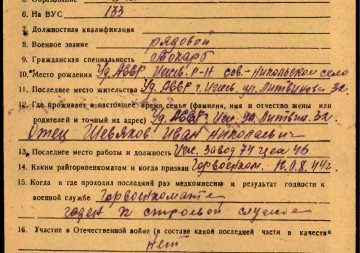 6. № ВУС 133
7. Должностная квалификация
8. Военное звание рядовой
9. Гражданская специальность токарь
10. Место рождения Уд. АССР р-н сов.-Никольское село
11. Последнее место жительства Уд. АССР г. ул. Литвинова
12. Где проживает в настоящее время семья (фамилия, имя и отчество жены или
родителей и точный их адрес) Уд. АССР ул. Литвинова
Отец Шевяков Иван Николаевич
13. Последнее место работы и должность завод 74 цех
14. Каким райгорвоенкоматом и когда призван Горвоенком. 10.8.44 г.
15. Когда и где проходил последний раз медкомиссию и результат годности к
военной службе Горвоенкомате
годен к строевой службе
16. Участие в Отечественной войне (в составе какой последней части в качестве
нет